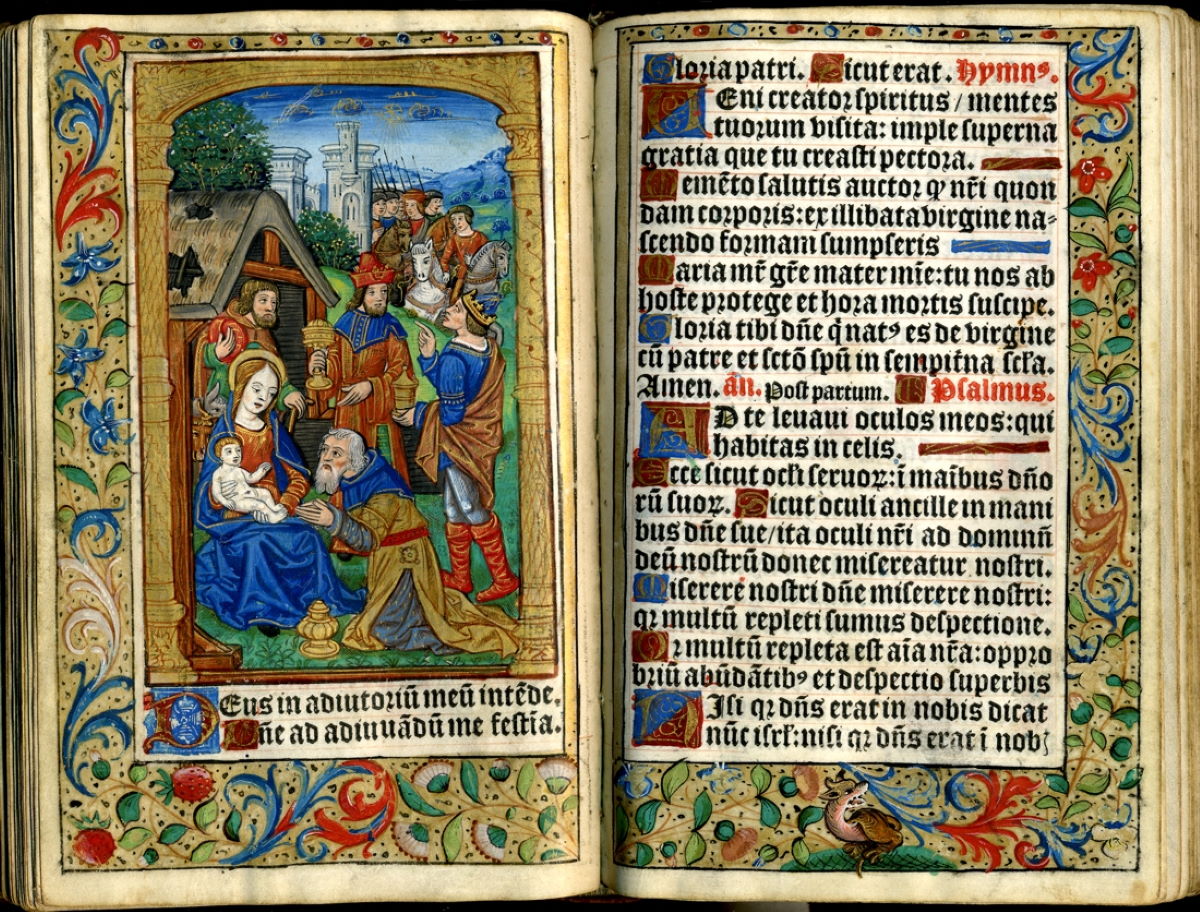 DEus in adiutoriū meū intēde.
Dn̄e ad adiuuādū me festīa.
Gloria patri. Sicut erat. Hymnꝰ.
VEni creator spiritus / mentes
tuorum visita: imple superna
gratia que tu creasti pectora.
Memēto salutis auctor qꝫ nr̄i quon
dam corporis: ex illibata virgine na⸗
scendo formam sumpseris
Maria mr̄ gr̄e mater mīe: tu nos ab
hoste protege et hora mortis suscipe.
Gloria tibi dn̄e q̇ natꝰ es de virgine
cū patre et sctō spū in sempit̄na sc̄l̄a.
Amen. an̄. Post partum. Psalmus.
AD te leuaui oculos meos: qui
habitas in celis.
Ecce sicut oc̄l̄i seruoꝝ: ī māibus dn̄o
rū suoꝝ. Sicut oculi ancille in mani
bus dn̄e sue / ita oculi nr̄i ad dominū
deū nostrū donec misereatur nostri.
Miserere nostri dn̄e miserere nostri:
qꝛ multū repleti sumus despectione.
Qꝛ multū repleta est aīa nr̄a: oppro
briū abūdātibꝰ et despectio superbis
NIsi qꝛ dn̄s erat in nobis dicat
nūc isrl̄: nisi qꝛ dn̄s erat ī nobꝫ